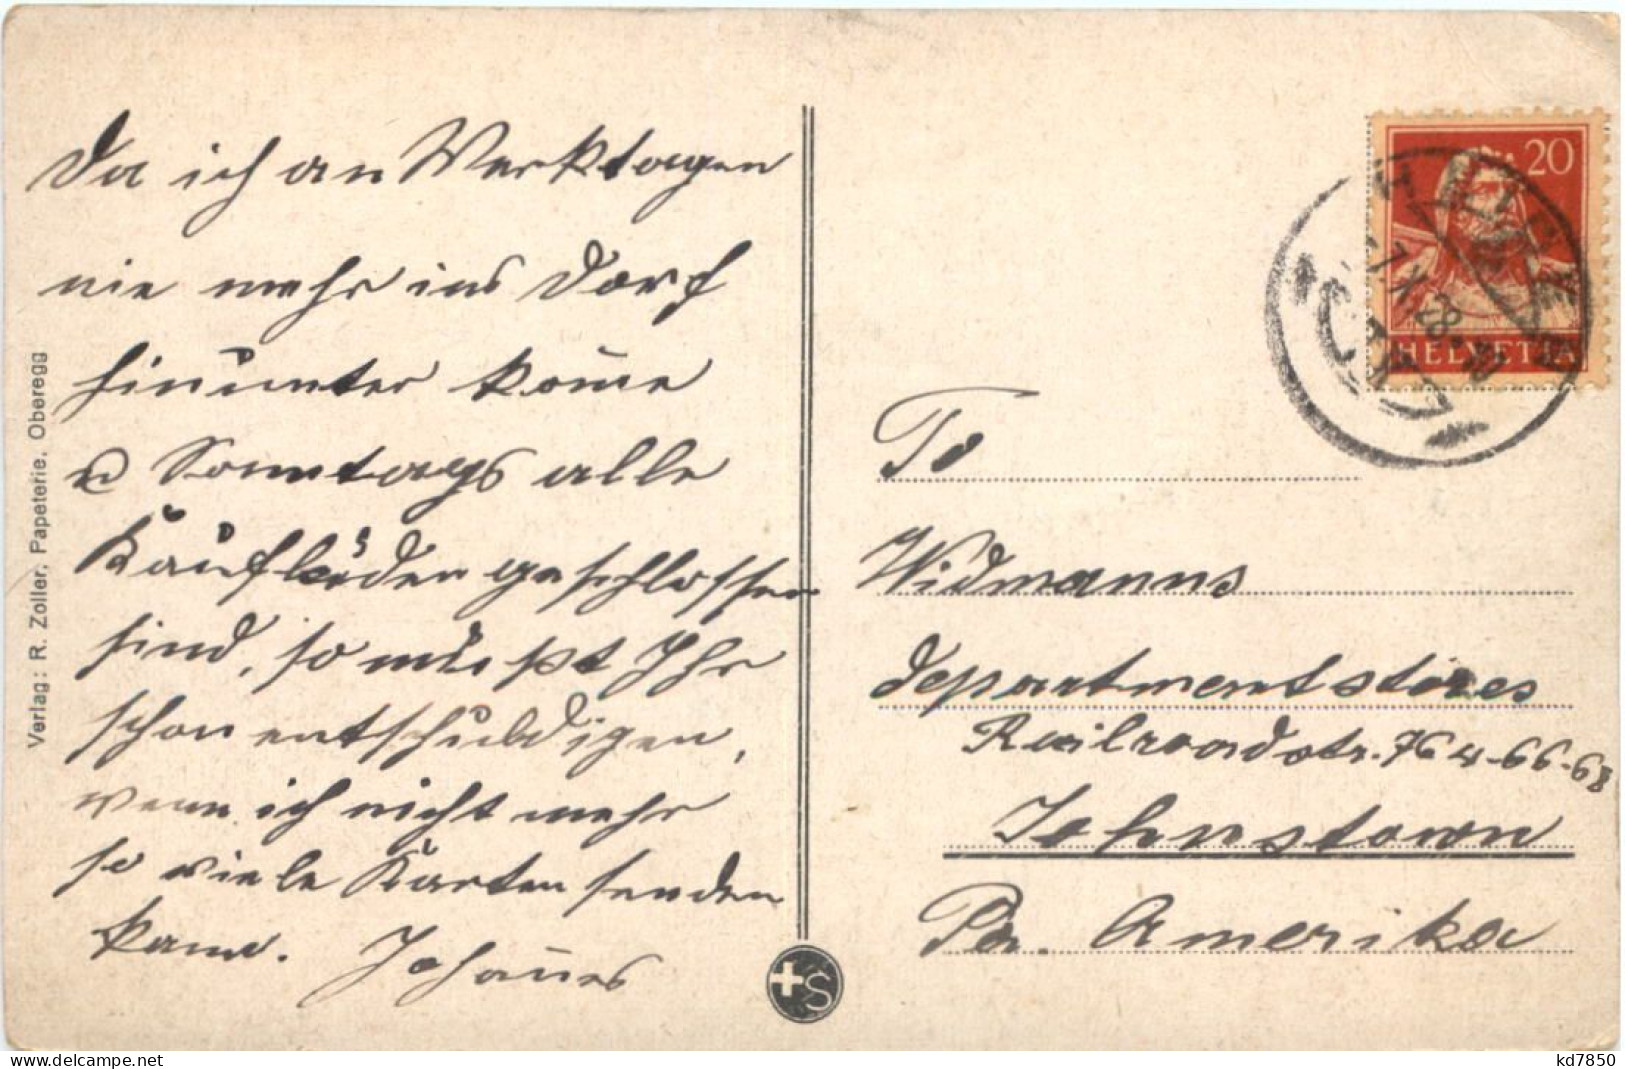 Da ich an Werktagen
nie mehr ins Dorf
hinunter kom̄e
u Sonntags alle
Kaufläden geschlossen
sind, so müßt Ihr
schon entschuldigen,
wenn ich nicht mehr
so viele Karten senden
kann. Johan̄es
Verlag: R. Zoller, Papeterie, Oberegg
+S
20
HELVETIA
28
To
Widmanns
departmentstores
Railroadstr. 764-66-68
Johnstown
Pa. Amerika
www.delcampe.net
kd7850